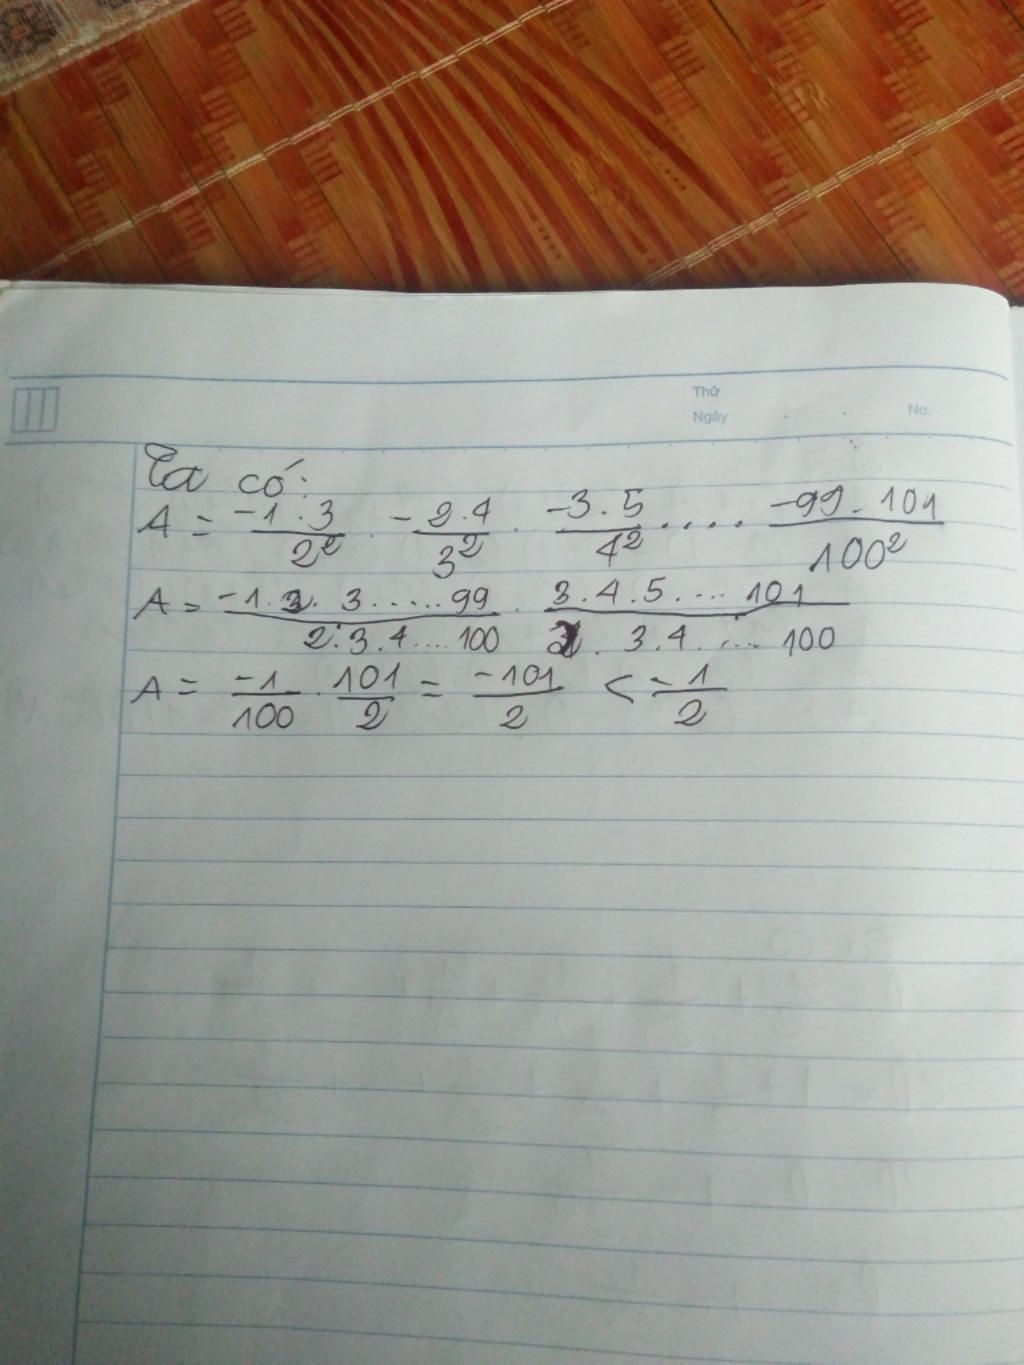 Thứ
Ngày . . No.
Ta có:
A = -1.3/2² . -2.4/3² . -3.5/4² ..... -99.101/100²
A = -1.2.3.....99/2.3.4....100 . 3.4.5....101/2.3.4....100
A = -1/100 . 101/2 = -101/2 < -1/2